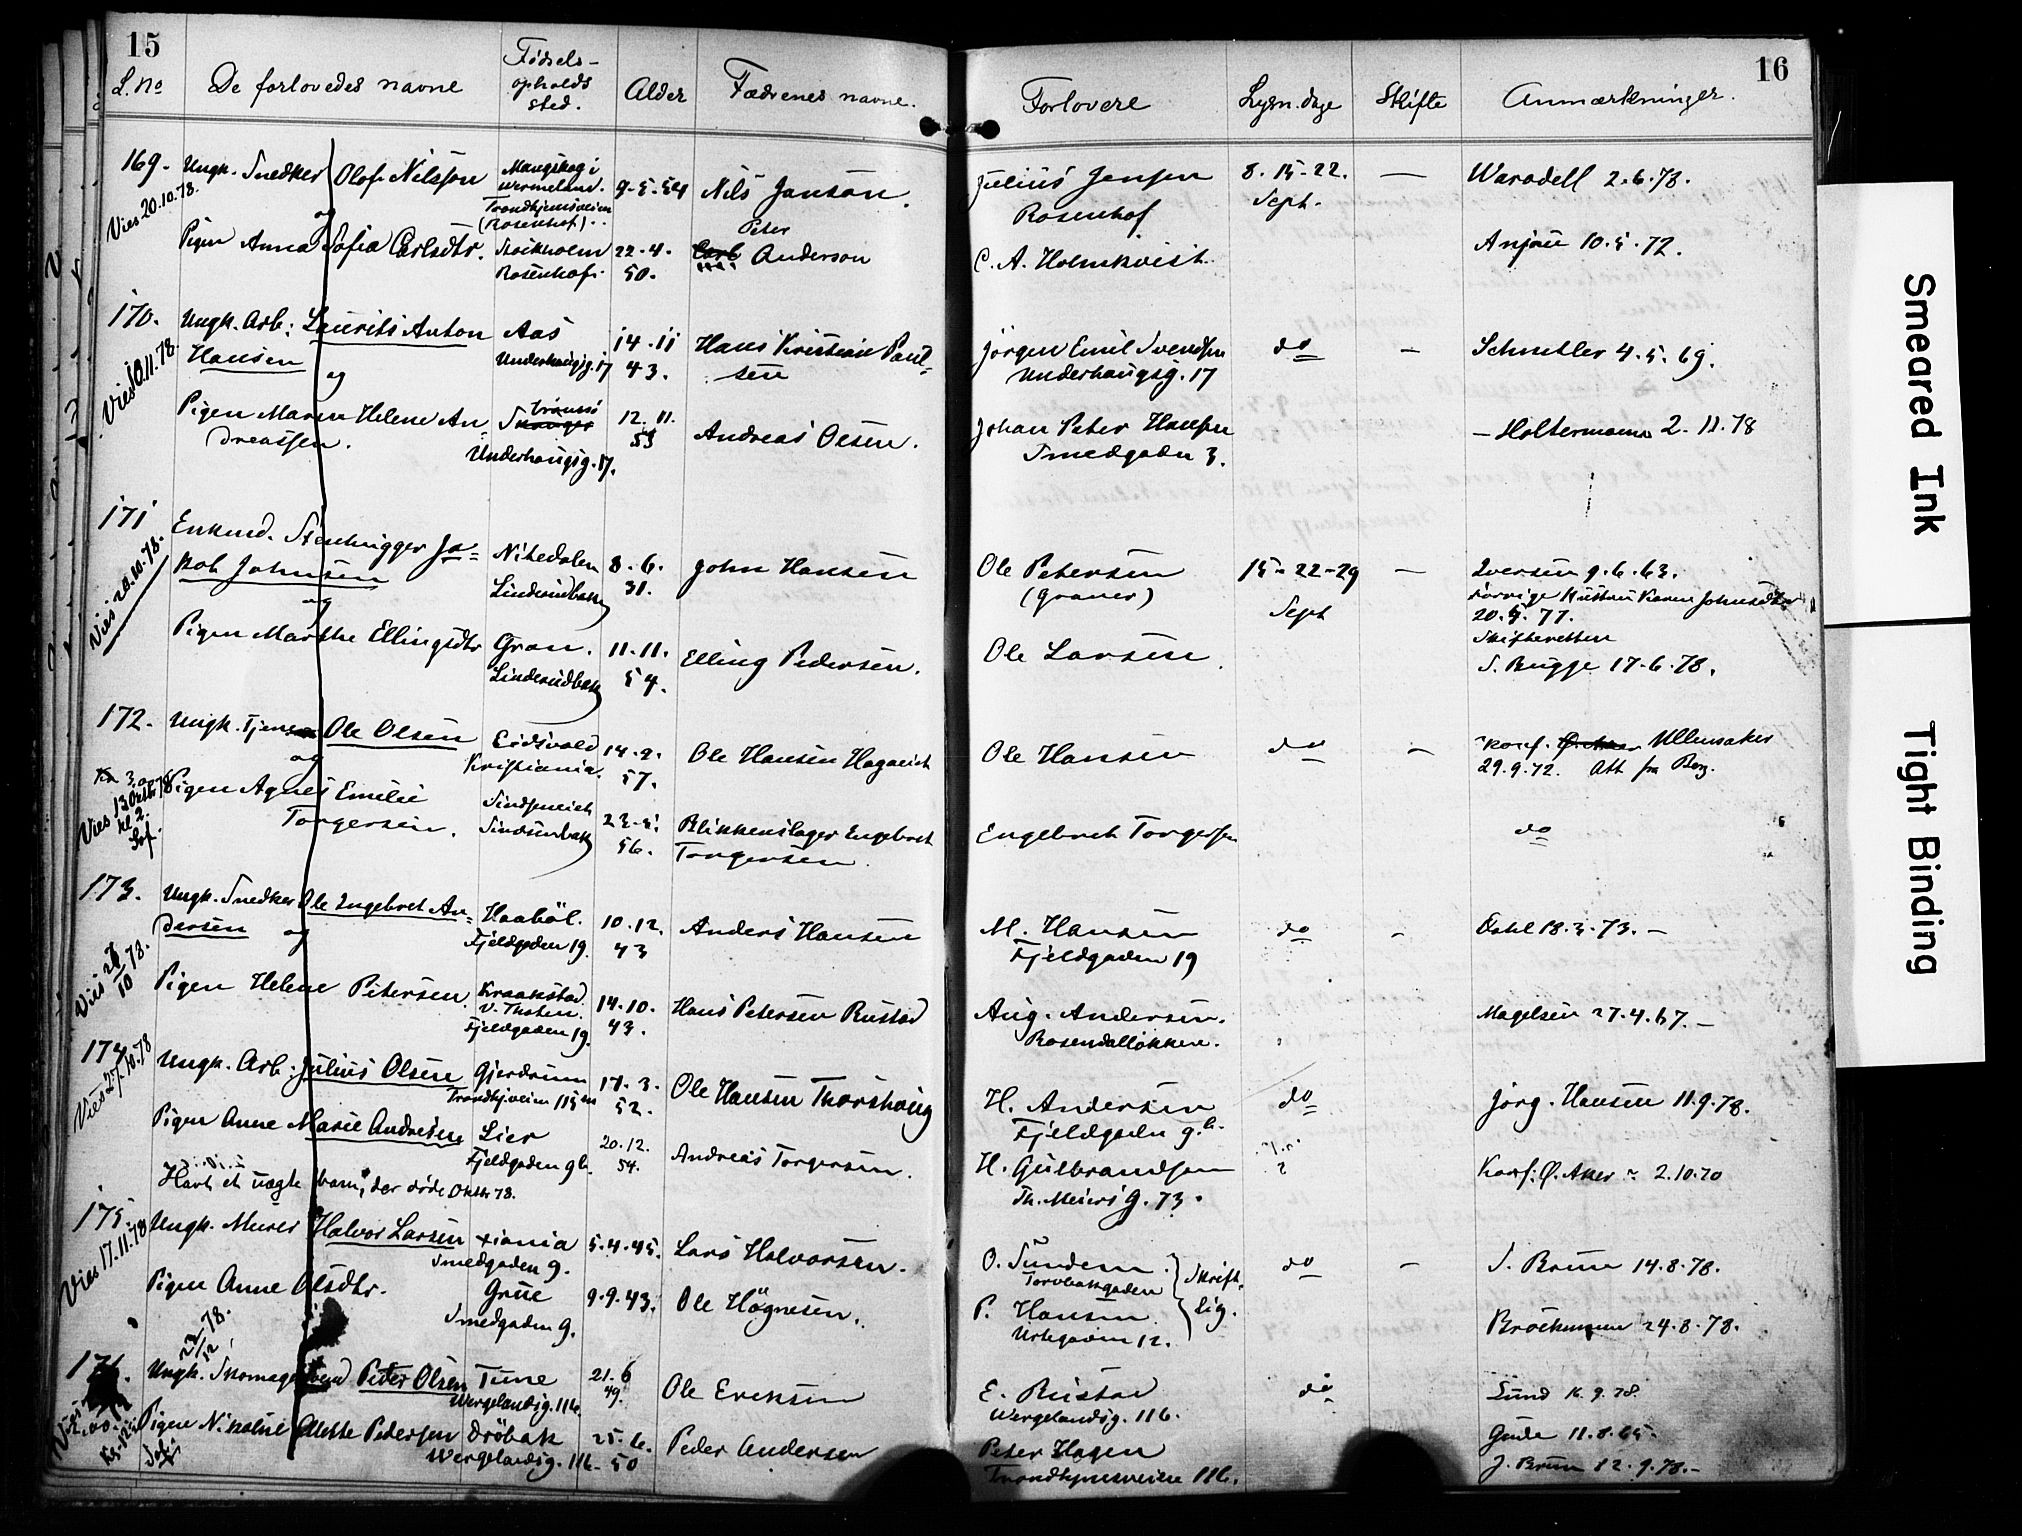 15
L. No
De forlovedes navne
Fødsels-
opholds
sted.
Alder
Fædrenes navne.
169.
Vies 20.10.78.
Ungk. Snedker Olof Nilsson
og
Pigen Anna Sofia Carlsdtr.
Mangskog i
Wermeland.
Trondhjemsveien
(Rosenhof)
Stockholm
Rosenhof.
9-5-54
22-4.
50.
Nils Janson.
Peter
Carl Anderson
170.
Vies 10.11.78.
Ungk. Arb: Laurits Anton
Hansen
og
Pigen Maren Helene An-
dreassen.
Aas
Underhaugsg. 17
Tromsö
Underhaugsg. 17.
14-11
43.
12. 11.
53
Hans Kristian Paul-
sen
Andreas Olsen.
171
Vies 20.10.78.
Enkmd. Stenhugger Ja-
kob Johnsen
og
Pigen Marthe Ellingsdtr
Nitedalen
Linderudbakk
Gran.
Linderudbakk
8. 6.
31.
11. 11.
54.
John Hansen
Elling Pedersen.
172.
Vies 13 Oktbr 78
kl. 2.
Sof.
Ungk. Tjener Ole Olsen
og
Pigen Agnes Emilie
Torgersen.
Eidsvold
Kristiania.
14-9.
57.
23-5.
56.
Ole Hansen Hagaeick
Blikkenslager Engebret
Torgersen.
173.
Vies 10 78.
Ungk. Snedker Ole Engebret An-
dersen og
Pigen Helene Petersen
Haabøl.
Fjeldgaden 19.
Kraakstad
V. Thoten.
Fjeldgaden 19.
10. 12.
43
14-10.
43.
Anders Hansen
Hans Petersen Rustad
174.
Vies 27.10.78
Ungk. Arb. Julius Olsen
Pigen Anne Marie Andresen
Havt et uægte barn, der døde Oktbr 78.
Gjerdrum
Trondhj.veien 115
Lier
Fjeldgaden 9b.
17. 3.
52.
20. 12.
54.
Ole Hansen Thorshaug
Andreas Torgersen.
175.
Vies 17.11.78
Ungk. Murer Halvor Larsen
Pigen Anne Olsdtr.
Xiania
Smedgaden 9.
Grue
Smedgaden 9.
5-4-45.
9.9.43.
Lars Halvorsen.
Ole Högnesen.
176.
Ungk. Skomagersvend Peter Olsen
Pigen Nikoline Alette Pedersen
Tune
Wergelandsg. 11b.
Dröbak
Wergelandsg. 11b.
21. 6
49.
25-6.
50
Ole Eriksen
Peder Andersen
16
Forlovere
Lysn. dage
Skifte
Anmærkninger.
Julius Jensen
Rosenhof
C. A. Holmkvist.
8. 15-22.
Sept.
—
Warodell 2.6.78.
Anjou 10.5.72.
Jörgen Emil Svendsen
Underhaugsg. 17
Johan Peter Hansen
Smedgaden 3.
do
—
Schnitler 4.5.69.
— Holtermann 2.11.78
Ole Petersen
(Graver)
Ole Larsen.
15-22-29
Sept
—
Iversen 9.6.63.
forrige Hustru Karen Johnsdtr
20.5.77.
Skifteretten
S. Bugge 17-6.78.
Ole Hansen
Engebret Torgersen
do
-
konf. Ullensaker
29.9.72. Att fra Berg.
do
M. Hansen
Fjeldgaden 19
Aug. Andersen.
Rosendalløkken.
do
-
Dahl 18.3.73. —
Magelsen 27.4.67. —
H. Andersen
Fjeldgaden 9b.
H. Gulbrandsen
Th. Meiersg. 73.
do
Jörg. Hansen 11.9.78.
Konf: Ø. Aker 2.10.70
O. Sundem.
Torvbakgaden
P. Hansen.
Urtegaden 12.
Skrift-
lig.
do
—
S. Bruun 14.8.78.
Brochmann 24.8.78.
E. Rustad
Wergelandsg. 11b.
Peter Hagen
Trondhjemsveien 11b.
do
Lund 16.9.78.
Gude 11.8.65.
J. Bruun 12.9.78.—
Smeared Ink
Tight Binding